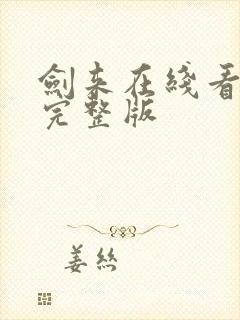 劍来在綫看
完整版
姜丝